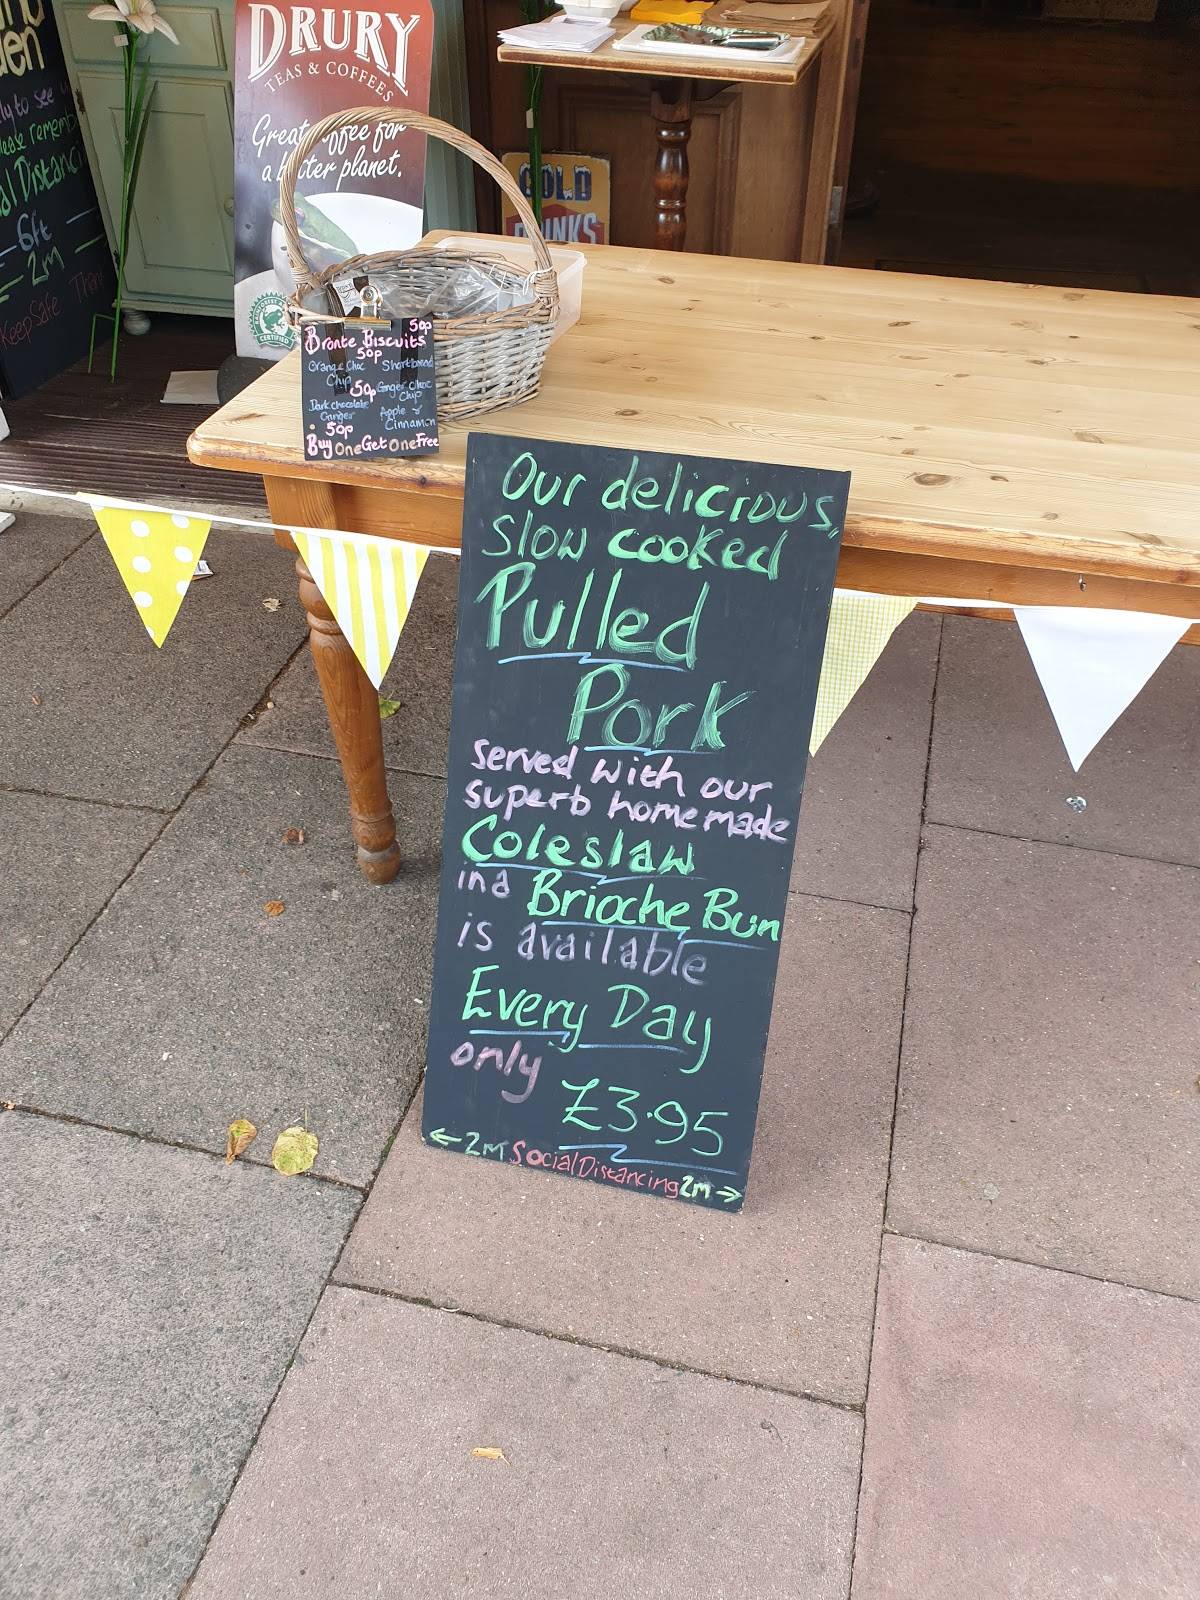 DRURY
TEAS & COFFEES
Great coffee for
a better planet.
CERTIFIED
COLD
DRINKS
6ft
2m
Keep Safe
50p
Bronte Biscuits
50p
Orange Choc Chip
Shortbread
50p
Ginger Choc Chip
Dark chocolate Ginger
Apple & Cinnamon
50p
Buy One Get One Free
Our delicious,
slow cooked
Pulled
Pork
served with our
superb homemade
Coleslaw
in a Brioche Bun
is available
Every Day
only
£3.95
← 2m Social Distancing 2m →